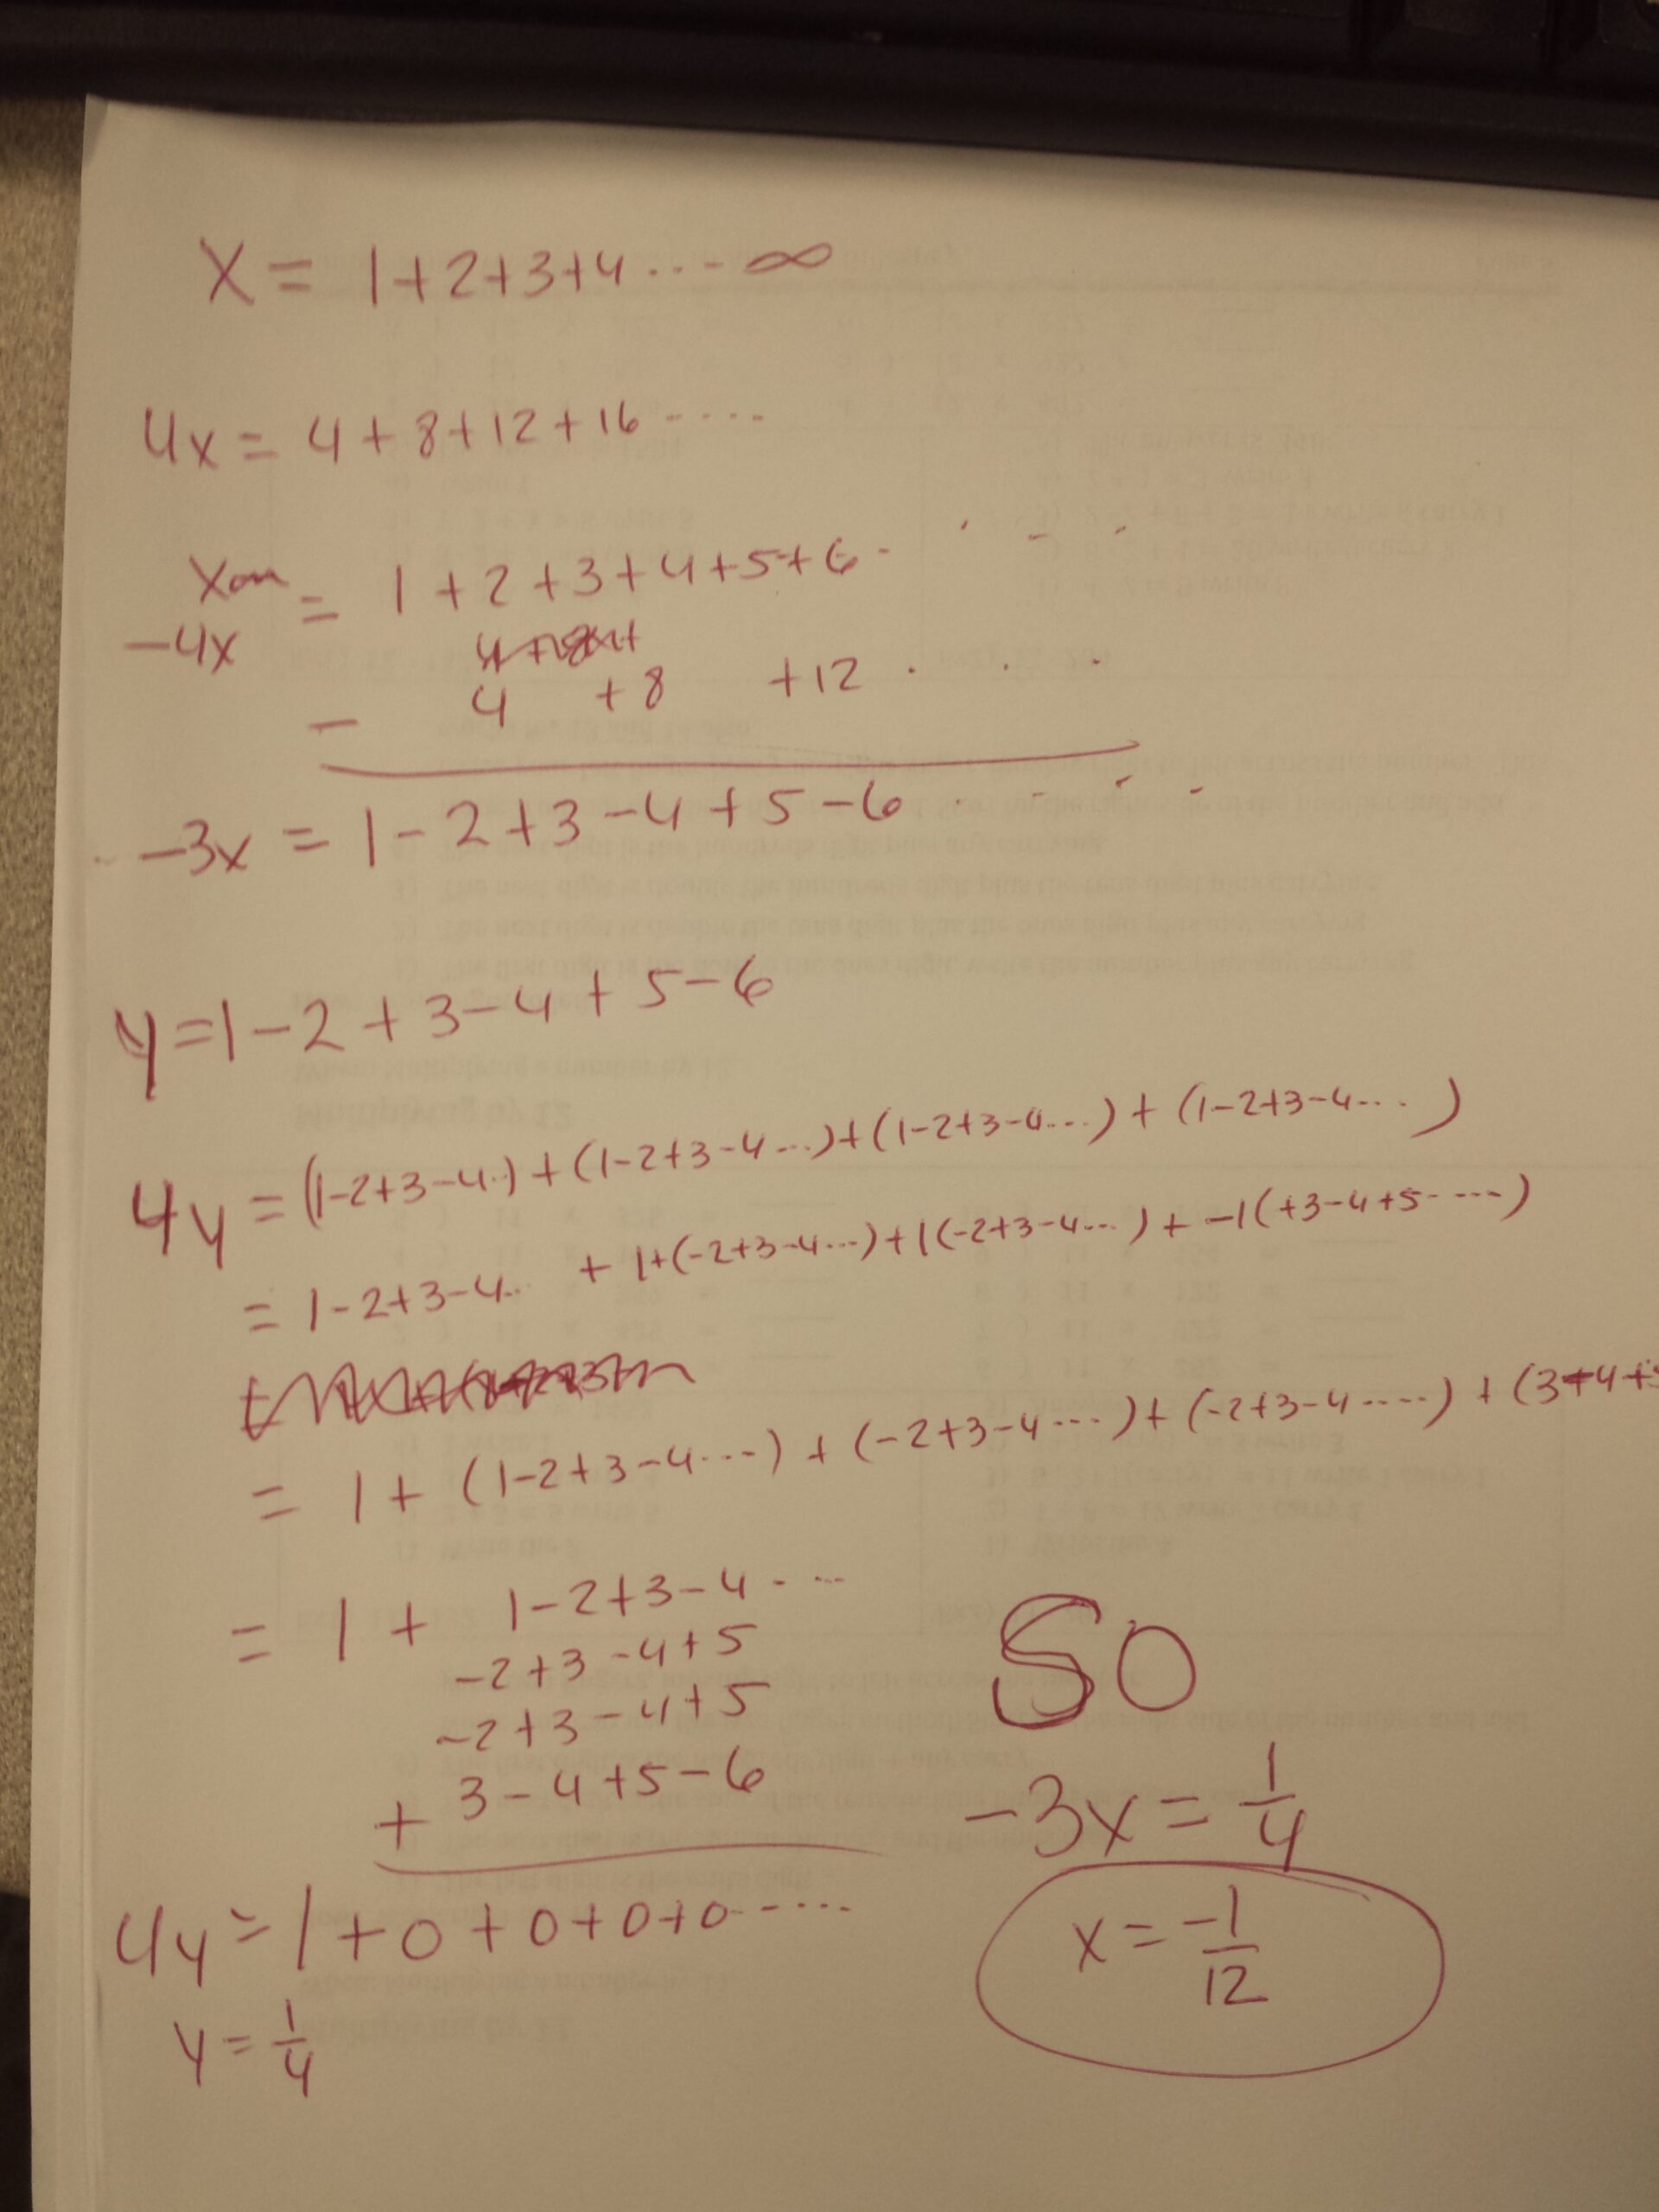 X = 1+2+3+4..-- ∞
4x = 4+8+12+16-....
x = 1+2+3+4+5+6- . - -
-4x
4 +8 +12 . . .
-
-3x = 1-2+3-4+5-6 - - -
y=1-2+3-4+5-6
4y = (1-2+3-4..)+(1-2+3-4...)+(1-2+3-4...)+(1-2+3-4... )
= 1-2+3-4.. + 1+(-2+3-4...)+1(-2+3-4...)+ -1(+3-4+5-....)
= 1+(1-2+3-4....)+(-2+3-4....)+(-2+3-4.....)+(3-4+5
= 1+ 1-2+3-4- ...
-2+3-4+5
-2+3-4+5
+ 3-4+5-6
4y = 1+0+0+0+0-....
y = 1/4
SO
-3x = 1/4
x = -1/12